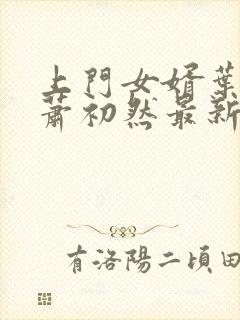 上門女婿葉
蕭初然最新
有洛陽二頃田